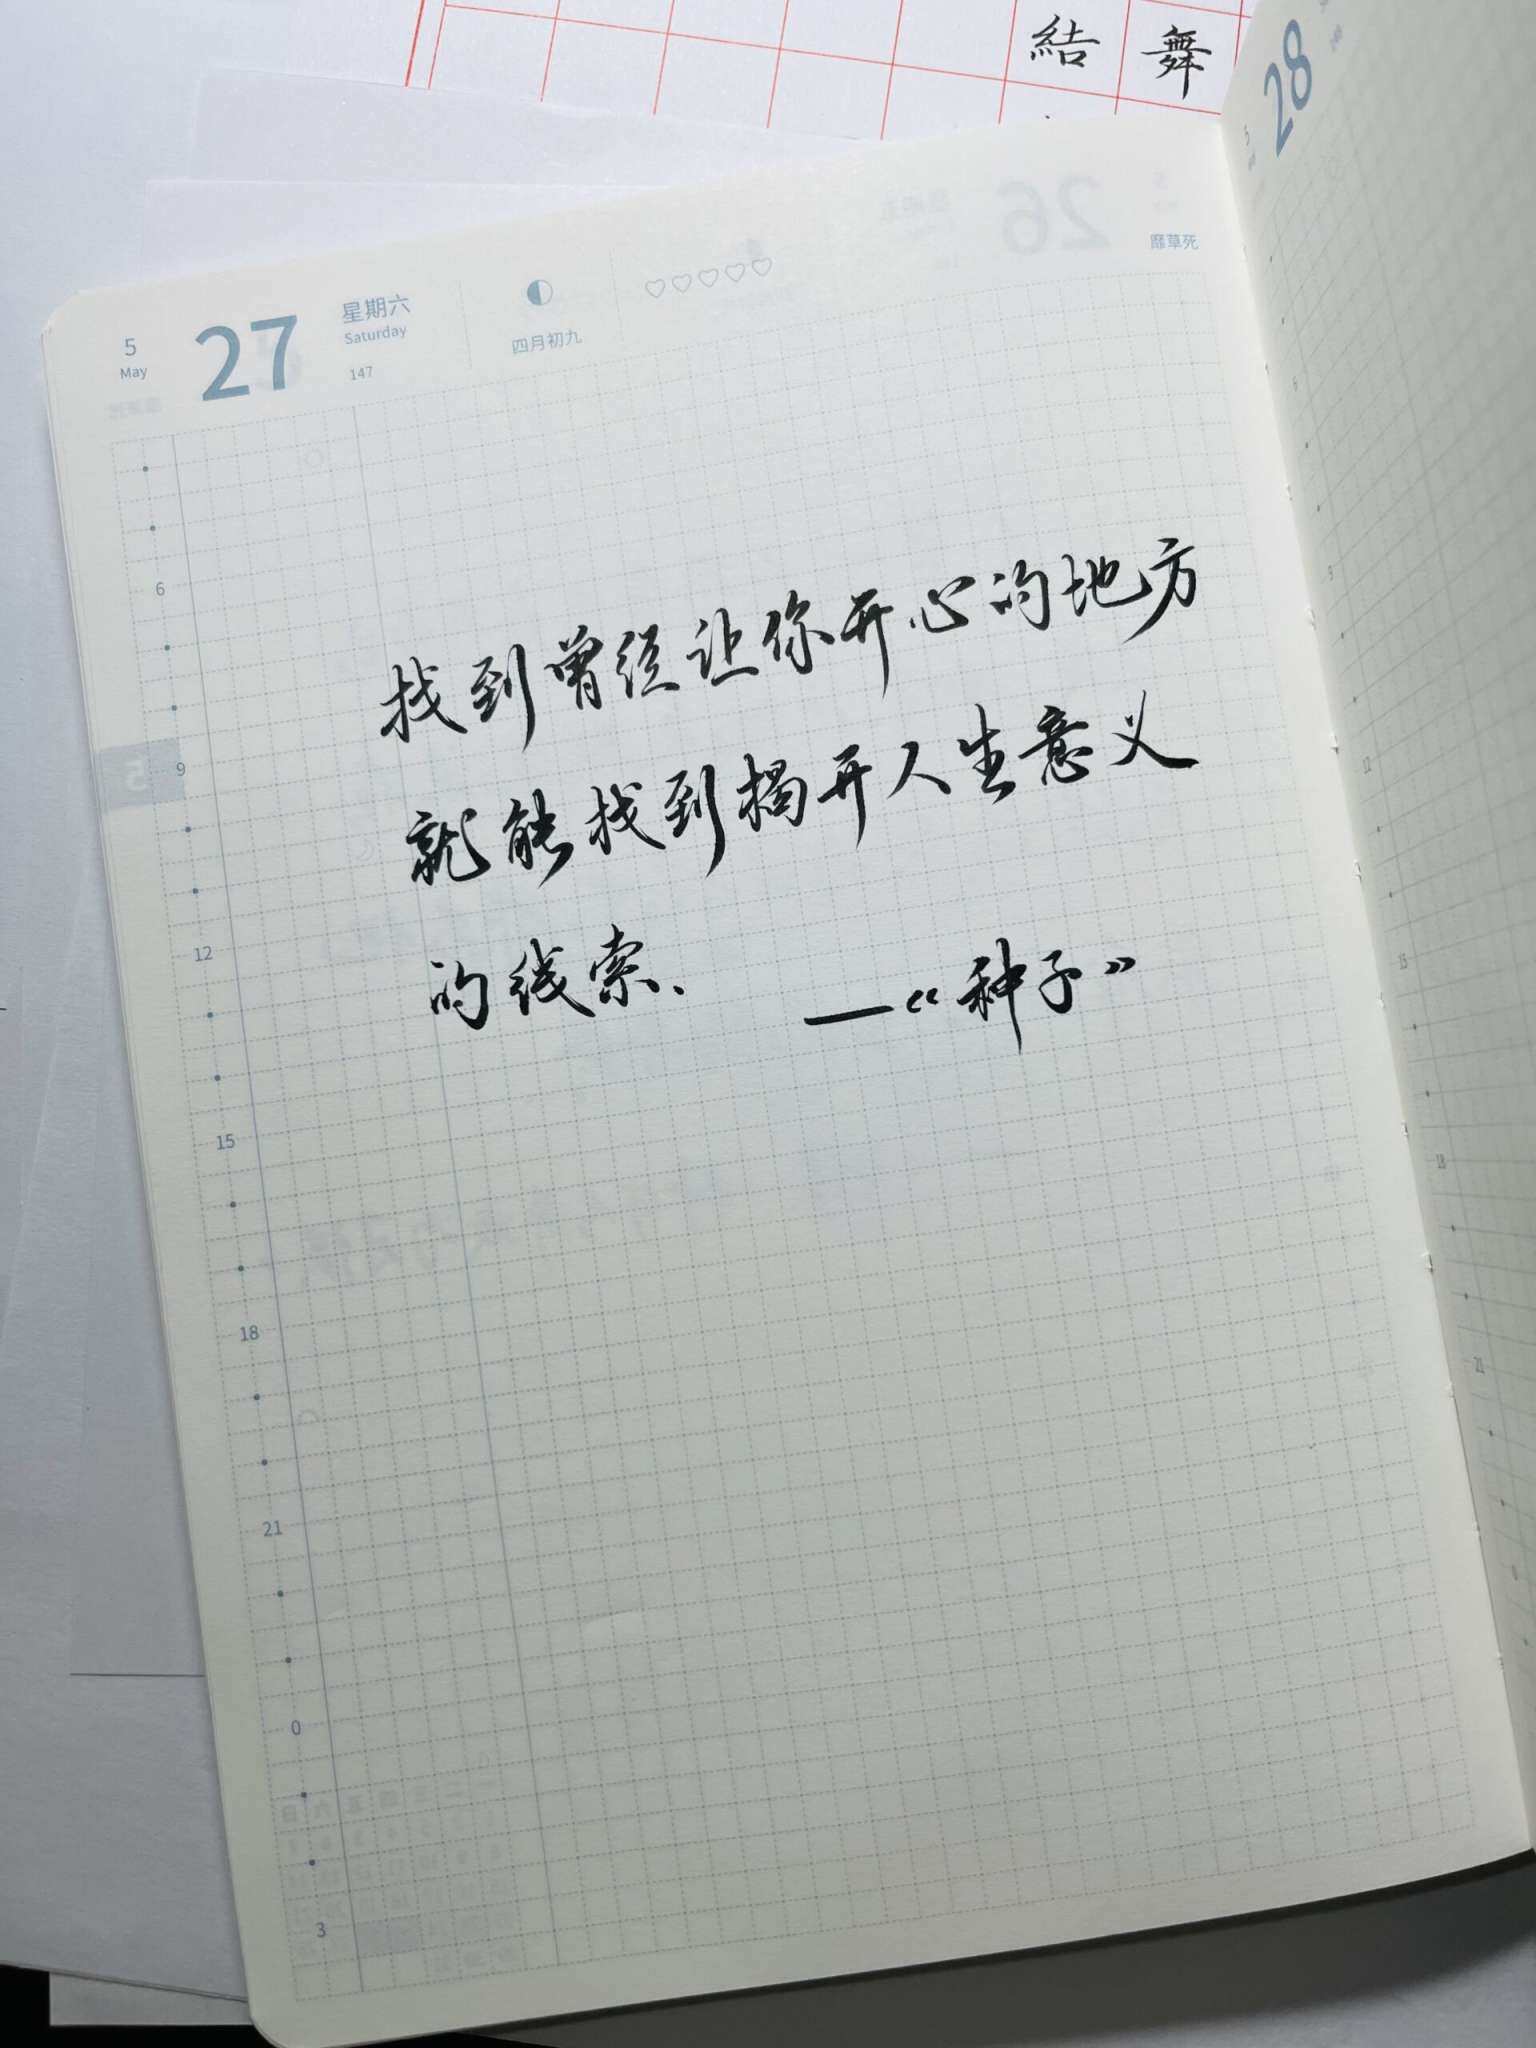 結 舞
28
5
靡草死
5
May
27
星期六
Saturday
147
四月初九
找到曾经让你开心的地方
就能找到揭开人生意义
的线索、
—《种子》
6
9
12
15
18
21
0
3
12
15
18
21